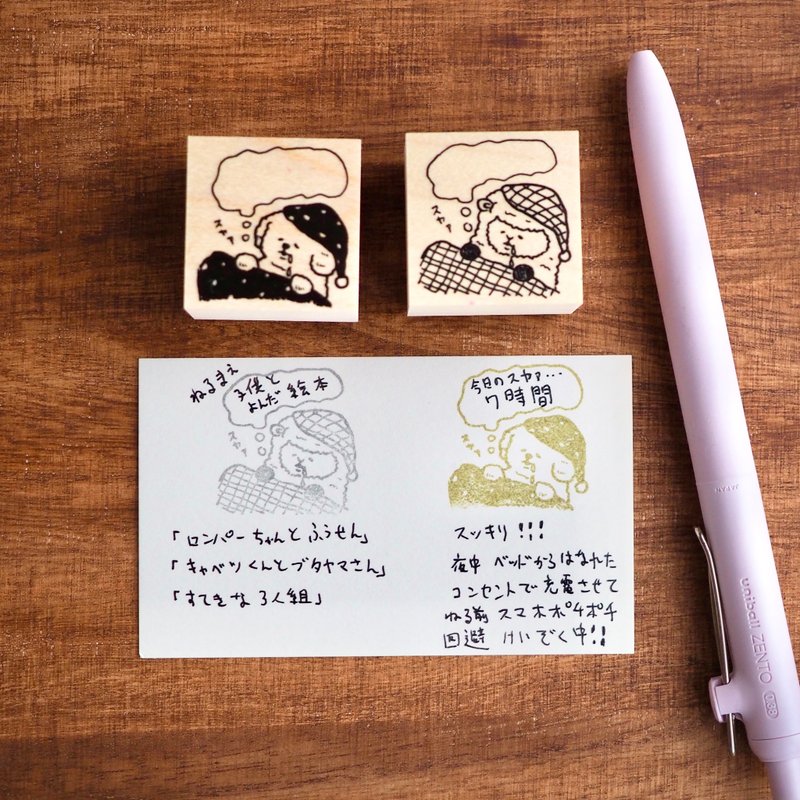 スヤァ
スヤァ
ねるまえ
子供と
よんだ絵本
スヤァ
「ロンパーちゃんとふうせん」
「キャベツくんとブタヤマさん」
「すてきな3人組」
今日のスヤァ…
7時間
スヤァ
スッキリ!!!
夜中 ベッドからはなれた
コンセントで充電させて
ねる前 スマホポチポチ
回避 けいぞく中!!
JAPAN
uniball ZENTO 0.38